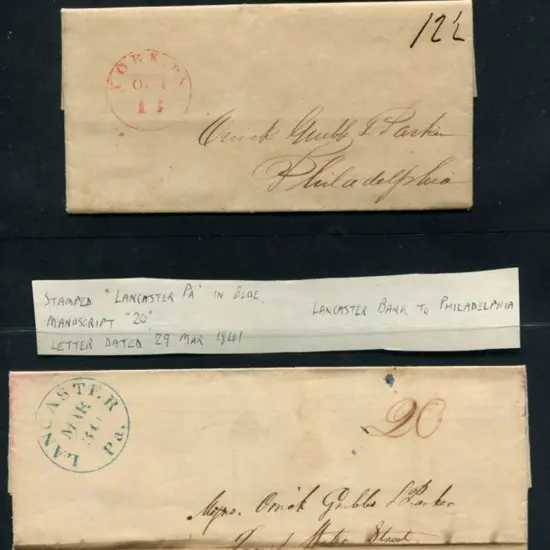 12½
YORK Pa
OCT
13
Orrick Grubb & Parker
Philadelphia
STAMPED "LANCASTER PA" IN BLUE.
MANUSCRIPT "20"
LETTER DATED 29 MAR 1841
LANCASTER BANK TO PHILADELPHIA
LANCASTER Pa.
MAR
30
20
Messrs. Orrick Grubbs & Parker
Water Street